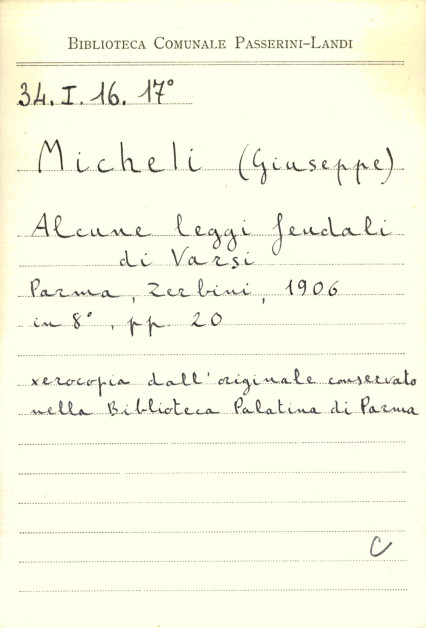 BIBLIOTECA COMUNALE PASSERINI-LANDI
34. I. 16. 17°
Micheli (Giuseppe)
Alcune leggi feudali
di Varsi
Parma, Zerbini, 1906
in 8°, pp. 20
xerocopia dall'originale conservato
nella Biblioteca Palatina di Parma
C